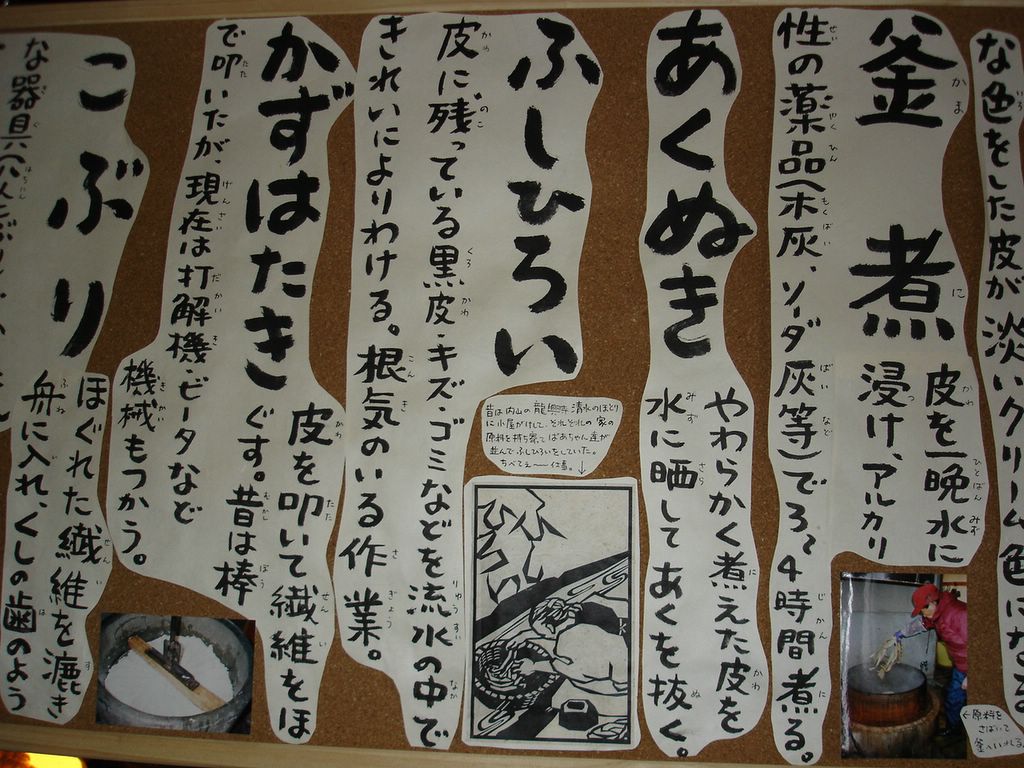 な色をした皮が淡いクリーム色になる
釜煮
皮を一晩水に
浸け、アルカリ
性の薬品(木灰、ソーダ灰等)で3〜4時間煮る。
←原料を
さばいて
釜へいれる
あくぬき
やわらかく煮えた皮を
水に晒してあくを抜く。
ふしひろい
皮に残っている黒皮・キズ・ゴミなどを流水の中で
きれいによりわける。根気のいる作業。
昔は内山の龍興寺清水のほとり
に小屋がけして、それぞれの家の
原料を持ち寄ってばあちゃん達が
並んでふしひろいをしていた。
ちべてえ〜仕事。↓
かずはたき
皮を叩いて繊維をほ
ぐす。昔は棒
で叩いたが、現在は打解機・ビータなど
機械もつかう。
こぶり
ほぐれた繊維を漉き
舟に入れ、くしの歯のよう
な器具